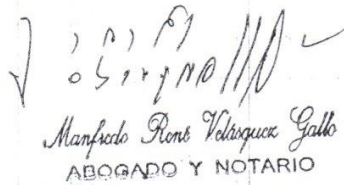 Manfredo René Velásquez Gallo
ABOGADO Y NOTARIO